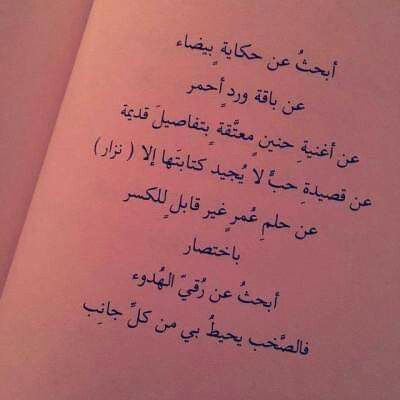 أبحثُ عن حكاية بيضاء
عن باقة وردٍ أحمر
عن أغنيةِ حنينٍ معتَّقة بتفاصيلَ قديمة
عن قصيدةِ حبٍّ لا يُجيد كتابتَها إلا ( نزار )
عن حلمِ عُمرٍ غير قابلٍ للكسر
باختصار
أبحثُ عن رُقيّ الهُدوء
فالصَّخب يحيطُ بي من كلِّ جانِب